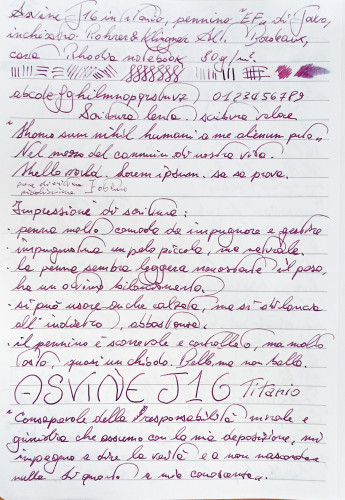 Asvine J16 in titanio, pennino "EF" di Jowo,
inchiostro Rohrer & Klingner Alt. Bordeaux,
carta Rhodia notebook 80g/m².
abcdefghilmnopqrstuvz 0123456789
Scrittura lenta. scrittura veloce
"Homo sum nihil humani a me alienum puto"
Nel mezzo del cammin di nostra vita.
Hello world. Lorem ipsum. sa sa prova.
Impressioni di scrittura:
• penna molto comoda da impugnare e gestire
• impugnatura un pelo piccola, ma naturale.
• la penna sembra leggera nonostante il peso,
ha un ottimo bilanciamento.
• si può usare anche calzata, ma si sbilancia
all'indietro, abbastanza.
• il pennino è scorrevole e controllato, ma molto
tosto, quasi un chiodo. Bello ma non balla.
ASVINE J16 Titanio
"Consapevole della responsabilità morale e
giuridica che assumo con la mia deposizione, mi
impegno a dire la verità e a non nascondere
nulla di quanto a mia conoscenza".